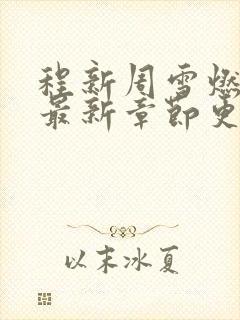 程新周雪燃
最新章节更
以末冰夏